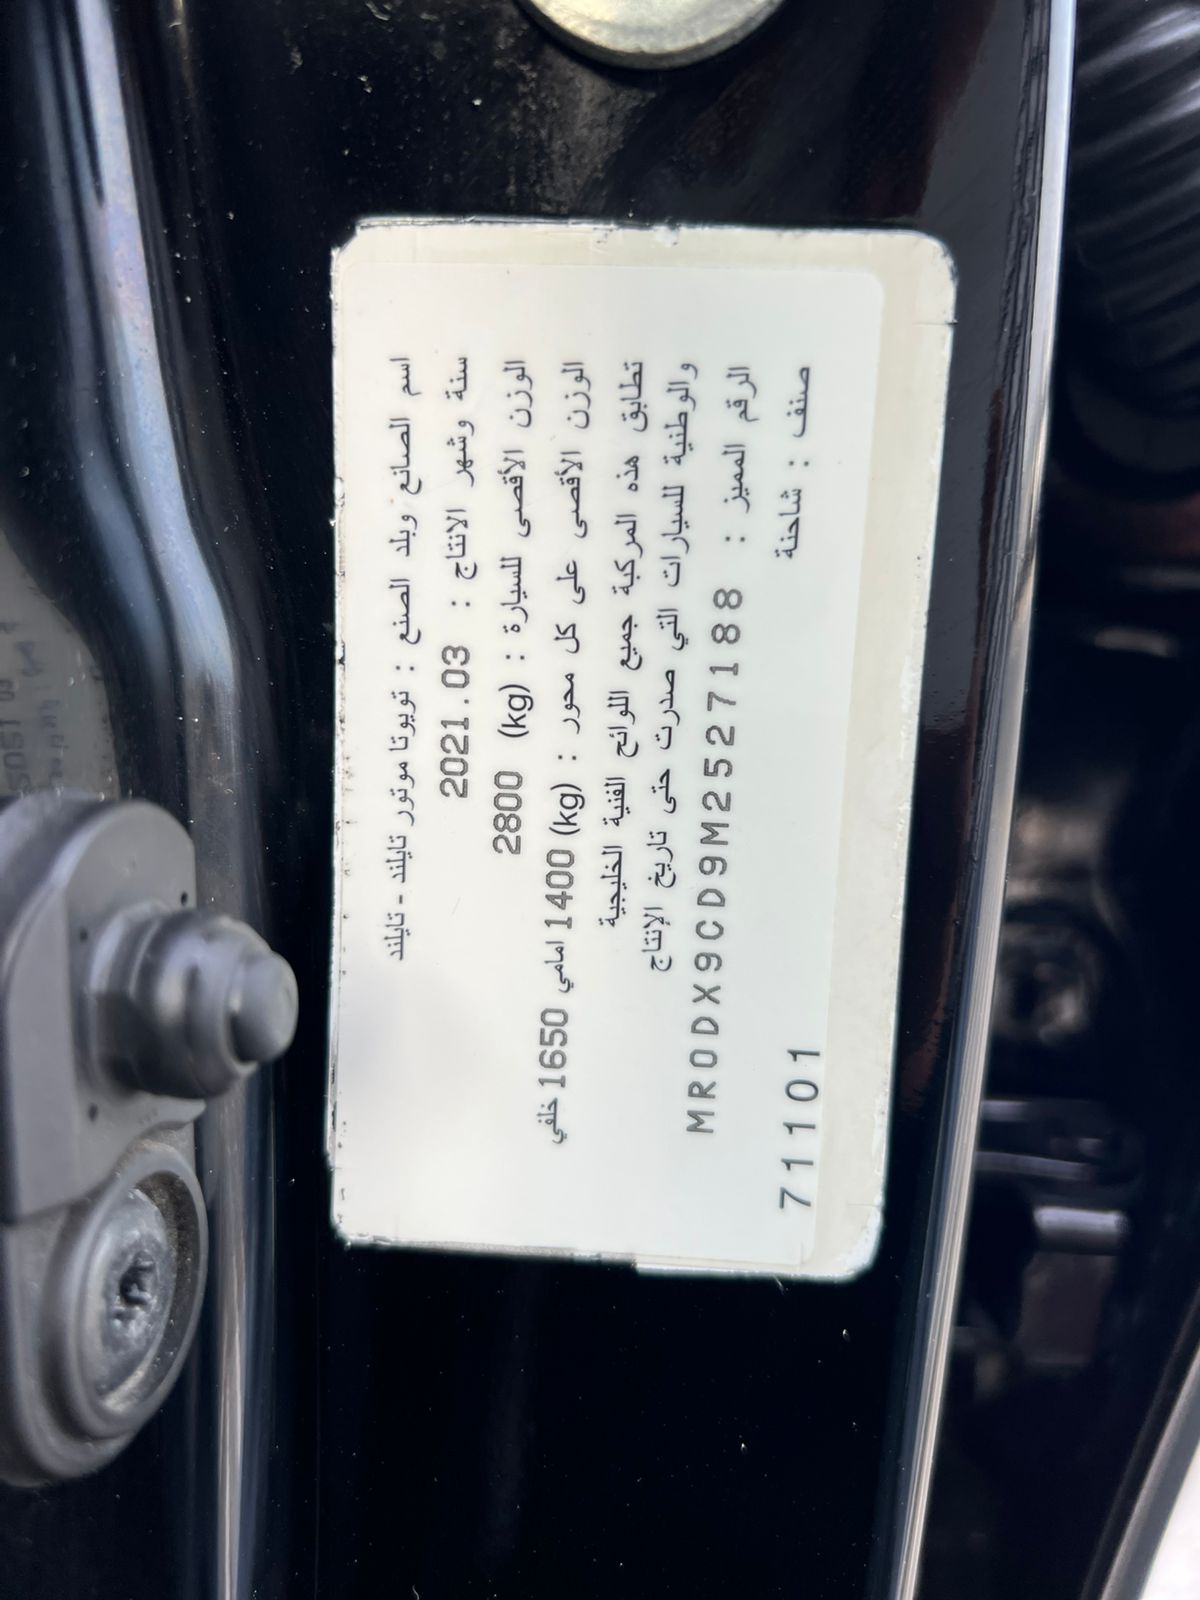 اسم الصانع وبلد الصنع : تويوتا موتور تايلند - تايلند
سنة وشهر الانتاج : 2021.03
الوزن الأقصى للسيارة : (kg) 2800
الوزن الأقصى على كل محور : (kg) 1400 امامي 1650 خلفي
تطابق هذه المركبة جميع اللوائح الفنية الخليجية
والوطنية للسيارات التي صدرت حتى تاريخ الإنتاج
الرقم المميز : MR0DX9CD9M2527188
صنف : شاحنة
71101